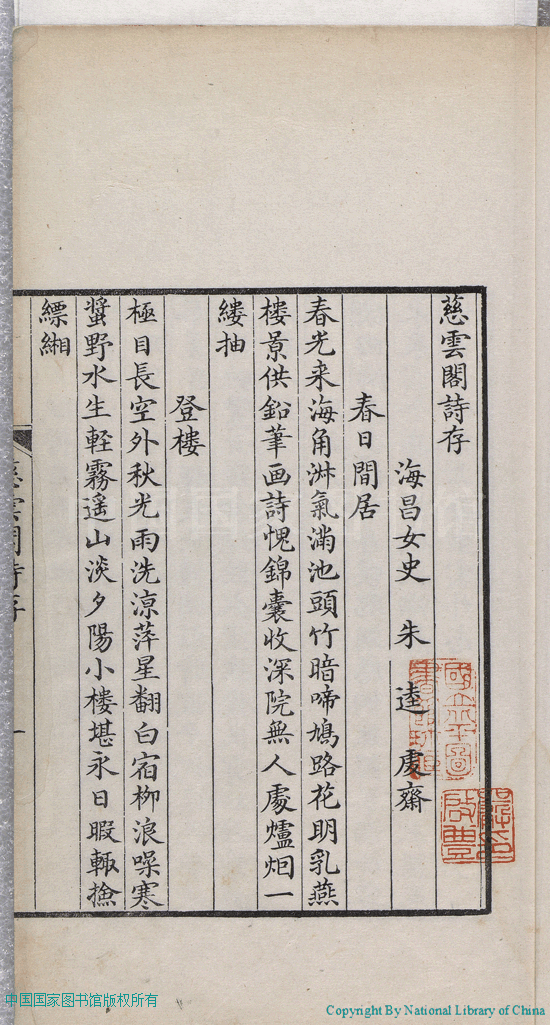 慈雲閣詩存
海昌女史 朱 逵 䖏齋
春日閒居
春光来海角淑氣滿池頭竹暗啼鳩路花明乳燕
樓景供鉛筆画詩愧錦囊收深院無人處爐烟一
縷抽
登樓
極目長空外秋光雨洗涼萍星翻白宿柳浪噪寒
螿野水生輕霧遥山淡夕陽小樓堪永日暇輒撿
縹緗
慈雲閣詩存
一
中国国家图书馆版权所有
Copyright By National Library of China